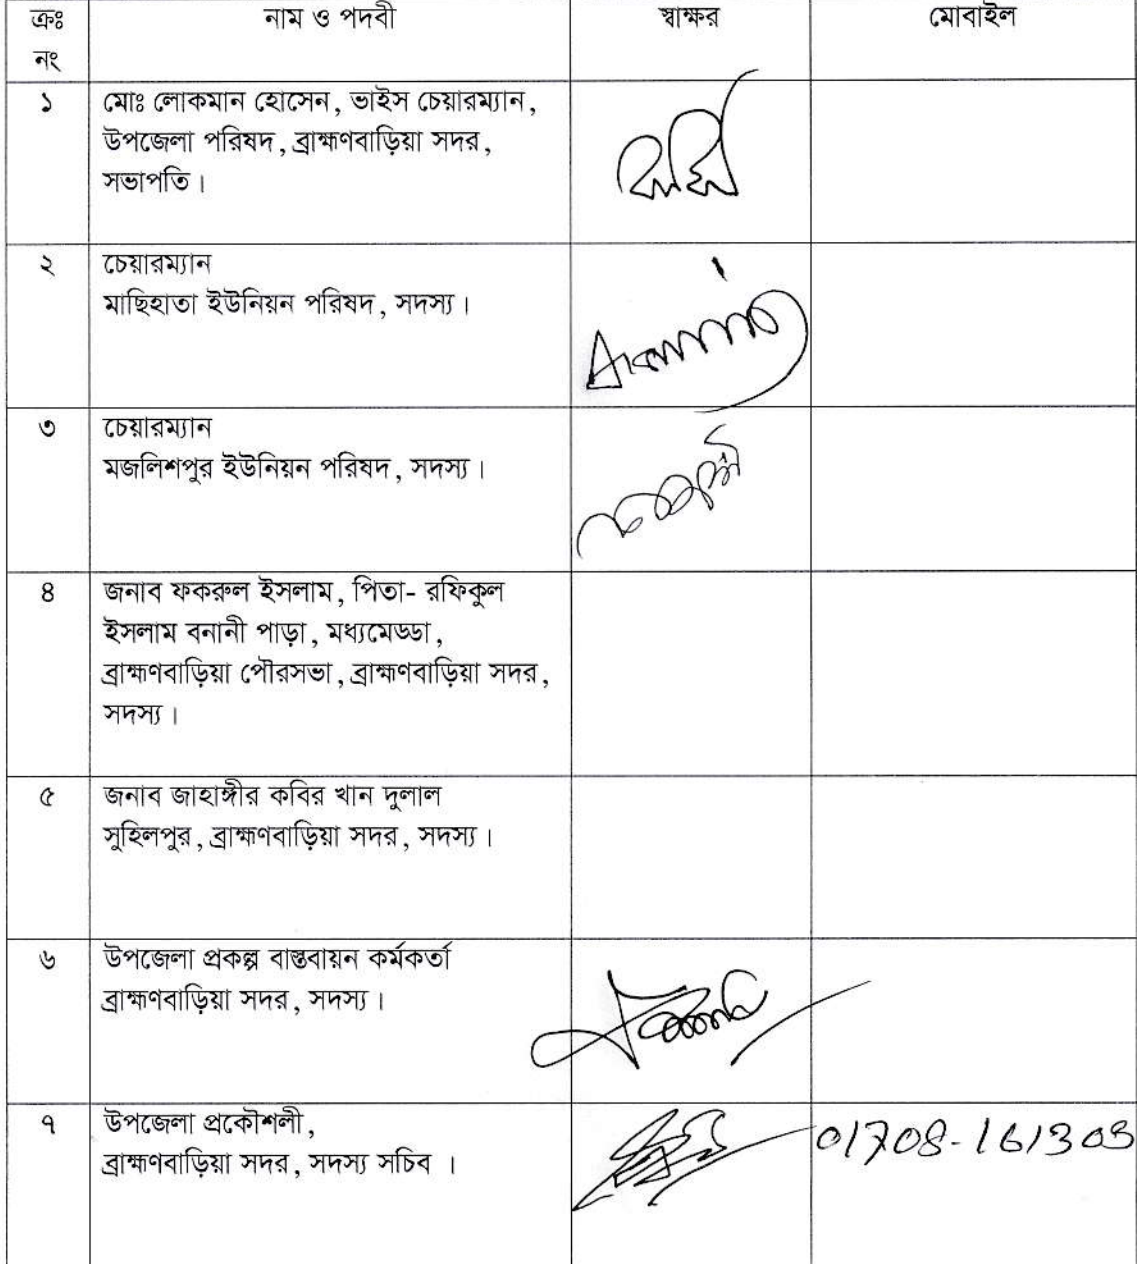 ক্রঃ নাম ও পদবী স্বাক্ষর মোবাইল
নং
১ মোঃ লোকমান হোসেন, ভাইস চেয়ারম্যান,
উপজেলা পরিষদ, ব্রাহ্মণবাড়িয়া সদর,
সভাপতি।
২ চেয়ারম্যান
মাছিহাতা ইউনিয়ন পরিষদ, সদস্য।
৩ চেয়ারম্যান
মজলিশপুর ইউনিয়ন পরিষদ, সদস্য।
৪ জনাব ফকরুল ইসলাম, পিতা- রফিকুল
ইসলাম বনানী পাড়া, মধ্যমেড্ডা,
ব্রাহ্মণবাড়িয়া পৌরসভা, ব্রাহ্মণবাড়িয়া সদর,
সদস্য।
৫ জনাব জাহাঙ্গীর কবির খান দুলাল
সুহিলপুর, ব্রাহ্মণবাড়িয়া সদর, সদস্য।
৬ উপজেলা প্রকল্প বাস্তবায়ন কর্মকর্তা
ব্রাহ্মণবাড়িয়া সদর, সদস্য।
৭ উপজেলা প্রকৌশলী, 01708-161309
ব্রাহ্মণবাড়িয়া সদর, সদস্য সচিব ।